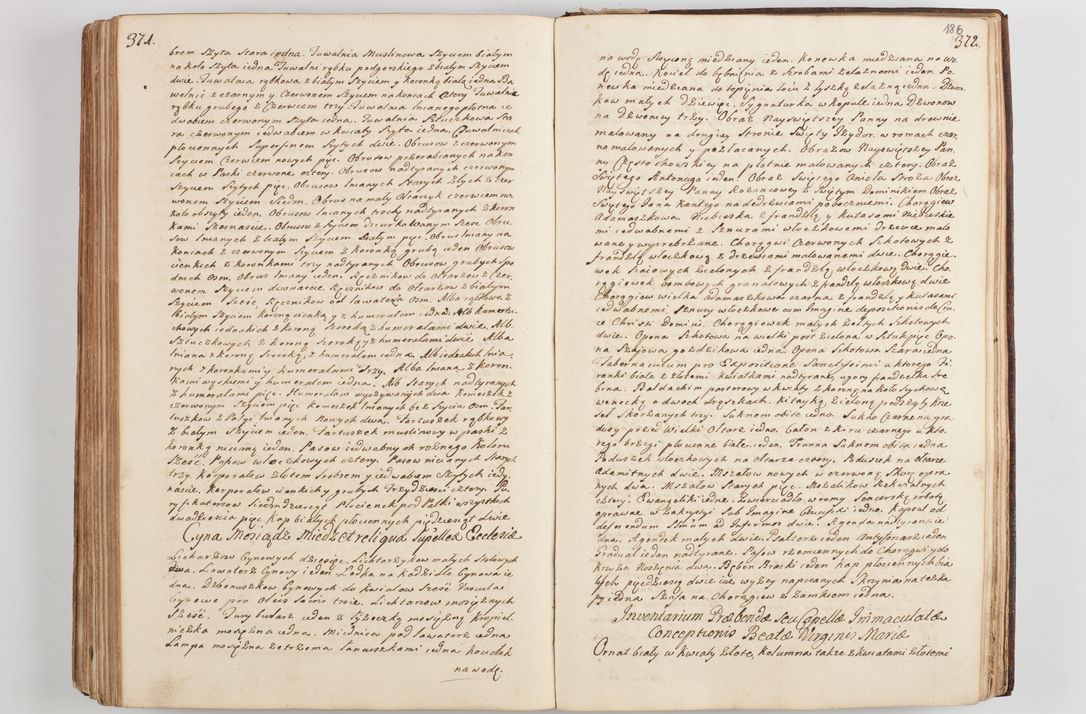 371.
brem Szyta stara iedna. Tuwalnia Muslinowa Szyciem białym
na koło Szyta iedna. Tuwalni rąbku podgorskiego z białym Szyciem
dwie. Tuwalnia rąbkowa z białym Szyciem y Koronką białą iedna Ba
wełnic z czarnym y Czerwonem Szyciem na koncach Cztery Tuwalnie
rąbku grubego z Czerwcem trzy. Tuwalnia lnianego płotna ie
dwabiem czerwonym Szyta iedna. Tuwalnia Sztuczkowa Sta
ra czerwonym iedwabiem w kwiaty Szyta iedna. Tuwalniczek
płociennych Superfinem Szytych dwie. Obrusow z czerwonym
Szyciem Czerwcem nowych pięc. Obrusow przerabianych na kon
cach w Paski czerwone cztery. Obrusow nadtyranych czerwonym
Szyciem Szytych pięc. Obrusow lnianych Starych Złych z czer
wonem Szyciem Siedm. Obrus na mały Ołtarzyk czerwcem na
koło obszyty ieden. Obrusow lnianych trochę nadtyranych z koron
kami Szesnascie. Obrusow z Szyciem Dziurkowanym Szesc Obru
sow lnianych z białym Szyciem Białym pięc. Obrus lniany na
koncach z czerwonym Szyciem z Koronką grubą ieden Obrusow
cienkich z Koronkami trzy nadtyranych Obrusow grubych Spo
dnich Osm. Obrus lniany ieden. Ręcznikow do Ołtarzow z Czer
wonem Szyciem dwanascie Ręcznikow do Ołtarzow z białym
Szyciem Szesc Ręcznikow od lawaterza Osm. Alba rąbkowa z
białym Szyciem koroną cienką y z humerałem iedna. Alb kamer
chowych iednakich z koroną Szeroką z humerałami dwie. Alb
Sztuczkowych z koroną Szeroką y z humerałami dwie. Alba
lniana z Koroną Szeroką, z humerałem iedna. Alb iednakich lnia
nych z koronkami y humerałami trzy. Alba lniana z koron
kami wąskiemi y humerałem iedna. Alb Starych nadtyranych
z humerałami pięc. Humerałow wyszywanych dwa komeszek z
czerwonym Szyciem pięc komeszek lnianych bez Szycia Osm. Far
tuszkow do Patyn lnianych Nowych dwa. Fartuszek rąbkowy
z białym Szyciem ieden. Fartuszek muslinowy w paski z
koronką neciąną ieden. Pasow iedwabnych rożnego Koloru
Szesc. Pasow włoczkowych cztery. Pasow nicianych Starych
trzy. korporałow złotem srebrem y iedwabiem Szytych iede
nascie. Korporałow cienkich y grubych trzydziesci cztery. Pu
ryfikaterzow Siedmdziesiąt Płocienek pod Palki wszystkich
dwadziescia pięc kap białych płociennych piędziesiąt dwie
Cyna Mosiądz Miedź et reliqua Supellex Ecclesiæ
Lichtarzow Cynowych dziewięc. Lichtarzykow małych Stołowych
dwa. Lawaterz Cynowy ieden. Łodka na kadzidło Cynowa ie
dna. Dzbanuszkow Cynowych do kwiatow Szesc Vascula
Cynowe pro Oleis Sacris troie. Lichtarzow mosiężnych
Szesc. Tury bularz ieden z łyżeczką mosiężny Kropiel
niczka mosiężna iedna. Miednica pod Lawaterz iedna
Lampa mosiężna ze trzema łancuszkami iedna kociołek
na wodę.
186
372.
na wodę Swięconą miedziany ieden. konewka miedziana na wo
dę iedna. Kocieł do bębnienia z Srobami żelaznemi ieden Pa
newka miedziana do topienia łoiu z łyszką żelazną iedna. Dzwon
kow małych Dziewięc. Sygnaturka w kopule iedna. Dzwonow
na Dzwonicy trzy. Obraz Nayswiętszey Panny na drewnie
malowany na drugiey Stronie Swięty Izydor. w romach czar
no malowanych y pozłacanych. Obrazow Nayswiętszey Pan
ny Częstochowskiey na płotnie malowanych cztery. Obraz
Swiętego Antoniego ieden. Obraz Swiętego Anioła Stroża Obraz
Nayswiętszey Panny Rożancowey z Swiętym Dominikiem Obraz
Swiętego Jana Kantego na dedrzwiami pobocznemi. Chorągiew
Adamaszkowa Niebieska z frandzlą y kutasami Niebieskie
mi iedwabnemi z Sznurami włoczkowemi Drzewce malo
wane y wysrebrzane. Chorągwi Czerwonych Szkotowych z
frandzlą włoczkową z Drzewcami malowanemi dwie. Chorągie
wek kaiowych zielonych z frandzlą włoczkową Dwie. Cho
rągiewek bombowych granatowych z frandzlą włoczkową dwie
Chorągiew wielka adamaszkowa czarna z frandzlą y kutasami
iedwabnemi, Sznury włoczkowe cum Imagine depositionis de Cru
ce Christi Domini. Chorągiewek małych żołtych Szkotowych
dwie. Opona Szkotowa na wielki post zielona w Sztuk pięc Opo
na Szaiowa gozdzikowa iedna. Opona Szkotowa Stara iedna
Tabernaculum pro Expositione Sanctissimi u ktorego Fi
ranki białe z złotemi kwiatkami nadtyrane, u gory frandzelka Sre
brna. Baldachim porterowy w kwiaty z koroną na koło Szychową
wenecką o dwoch drążkach. Kitayką Zieloną podszyty Krze
seł Skorzanych trzy. Suknem obite iedno. Sukno Czarne na gra
dusy przed Wielki Ołtarz iedno. Całun z kiru czarnego u kto
rego brzegi płocienne białe ieden. Trunna Suknem obita iedna
Poduszek włoczkowych na ołtarze cztery. Poduszek na ołtarz
Adamitnych dwie. Mszałow nowych w czerwoną Skorę opra
wnych dwa. Mszałow Starych pięc. Mszalikow Rekwialnych
cztery. Ewangeliki iedne. Zwierciadło w romy Sencerską robotę
oprawne w Zakrystyi sub Imagine Crucifixi iedno. Kapsuł ad
deferendum SSmūm ad Infirmos dwie. Agenda nadtyrana ie
dna. Agendek małych dwie. Psałterz ieden Antyfonarz ieden
Graduał ieden nadtyrane. Pasow rzemiennych do Chorągwi y do
krzyża Noszenia dwa. Bęben Bracki ieden kap płociennych bia
łych piędziesiąt dwie iuż wyżey napisanych. Skrzynia na teszka
py iedna Szafa na Chorągiew z zamkiem iedna.
Inventarium Præbendæ seu Capellæ Immaculatæ
Conceptionis Beatæ Virginis Mariæ
Ornat biały w kwiaty złote, kolumna także z kwiatami złotemi